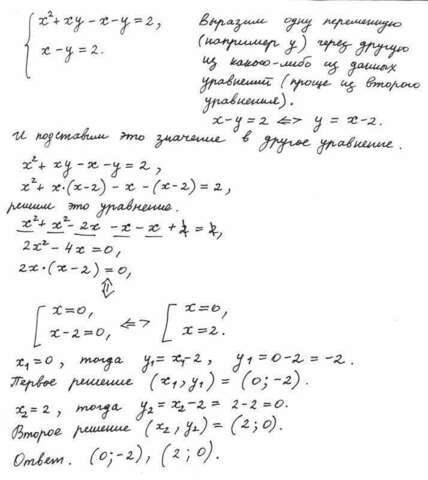 x²+xy-x-y=2,
x-y=2.
Выразим одну переменную
(например y) через другую
из какого-либо из данных
уравнений (проще из второго
уравнения).
x-y=2 <=> y=x-2.
И подставим это значение в другое уравнение.
x²+xy-x-y=2,
x²+x·(x-2)-x-(x-2)=2,
решим это уравнение.
x²+x²-2x-x-x+2=2,
2x²-4x=0,
2x·(x-2)=0,
⇕
[ x=0, x-2=0, <=> [ x=0, x=2.
x₁=0, тогда y₁=x₁-2, y₁=0-2=-2.
Первое решение (x₁,y₁)=(0;-2).
x₂=2, тогда y₂=x₂-2=2-2=0.
Второе решение (x₂,y₂)=(2;0).
Ответ. (0;-2), (2;0).